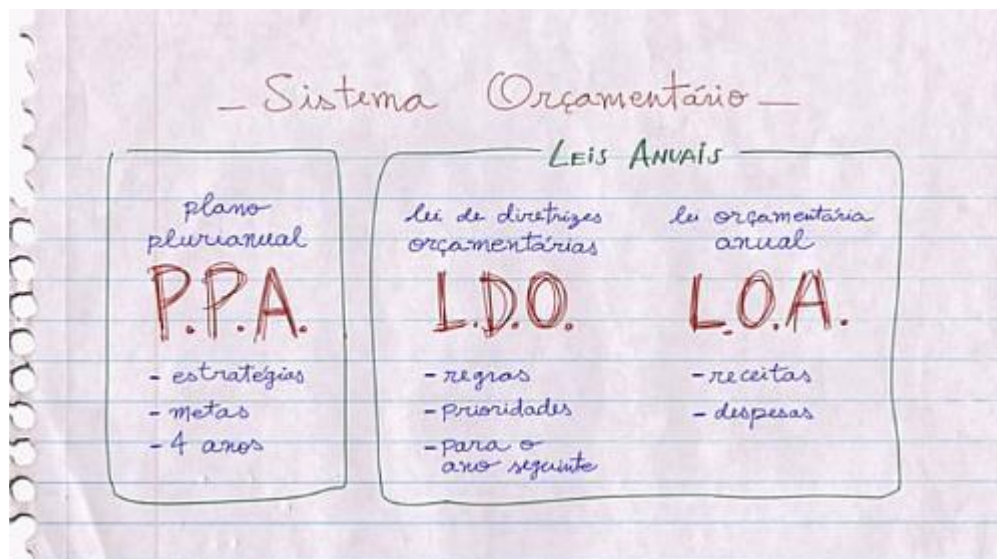 — Sistema Orçamentário —
LEIS ANUAIS
plano
plurianual
P.P.A.
- estratégias
- metas
- 4 anos
lei de diretrizes
orçamentárias
L.D.O.
- regras
- prioridades
- para o
ano seguinte
lei orçamentária
anual
L.O.A.
- receitas
- despesas